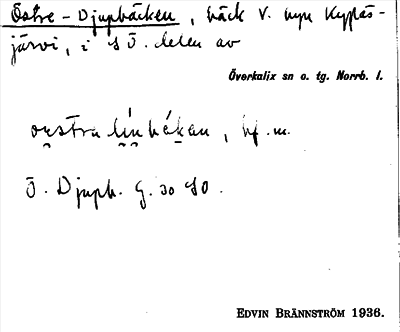 Östre-Djupbäcken, bäck V. nyn Kypäs-
järvi, i SÖ. delen av
Överkalix sn o. tg. Norrb. l.
bf. m.
Ö. Djupb. G. 30 SO.
EDVIN BRÄNNSTRÖM 1936.